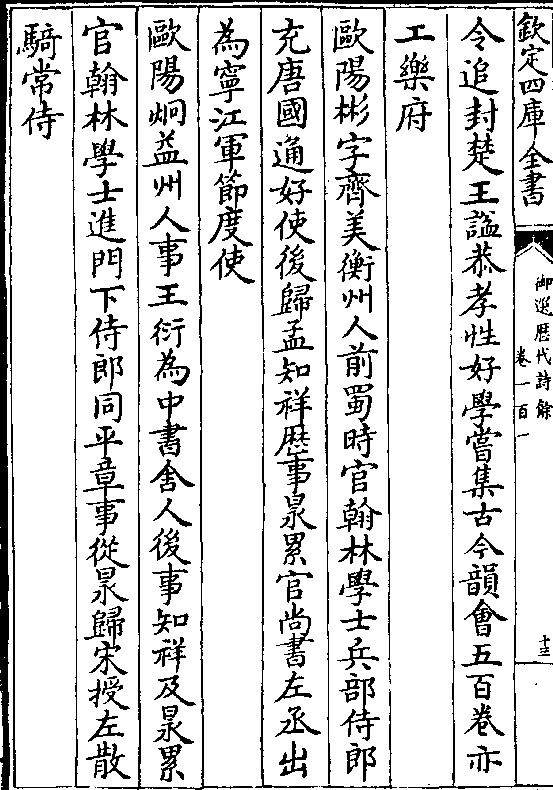 欽定四庫全書
御選歷代詩餘
卷一百一
十三
令追封楚王謚恭孝性好學嘗集古今韻會五百卷亦
工樂府
歐陽彬字齊美衡州人前蜀時官翰林學士兵部侍郎
充唐國通好使後歸孟知祥歷事昶累官尚書左丞出
為寧江軍節度使
歐陽炯益州人事王衍為中書舍人後事知祥及昶累
官翰林學士進門下侍郎同平章事從昶歸宋授左散
騎常侍